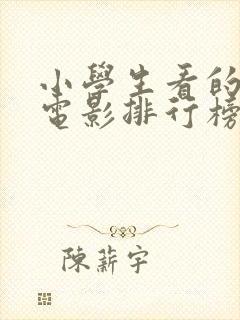 小學生看的
電影排行榜
陳薪宇